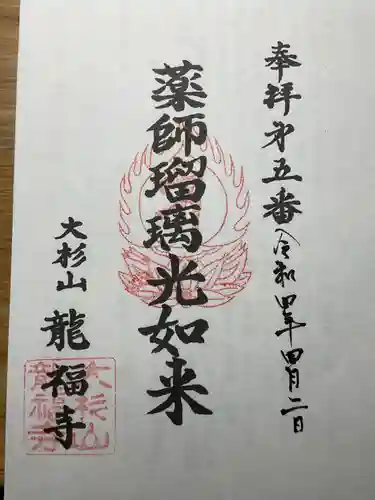 奉拝 第五番 令和四年四月二日
薬師瑠璃光如来
大杉山 龍福寺
大杉山
龍福寺